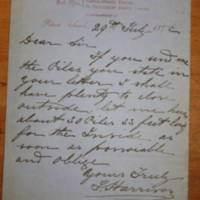 29th July 18
Dear Sir
If you send me
the Piles you state in
your letter I shall
have plenty to close
outside; let me have
about 30 Piles 23 feet long
for the Inside, as
soon as possible
and oblige
Yours Truly
J. Harrison